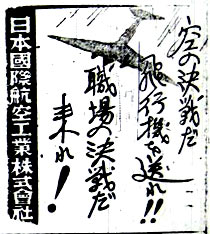 空の決戦だ
飛行機を送れ!!
職場の決戦だ
来れ!
日本國際航空工業株式會社